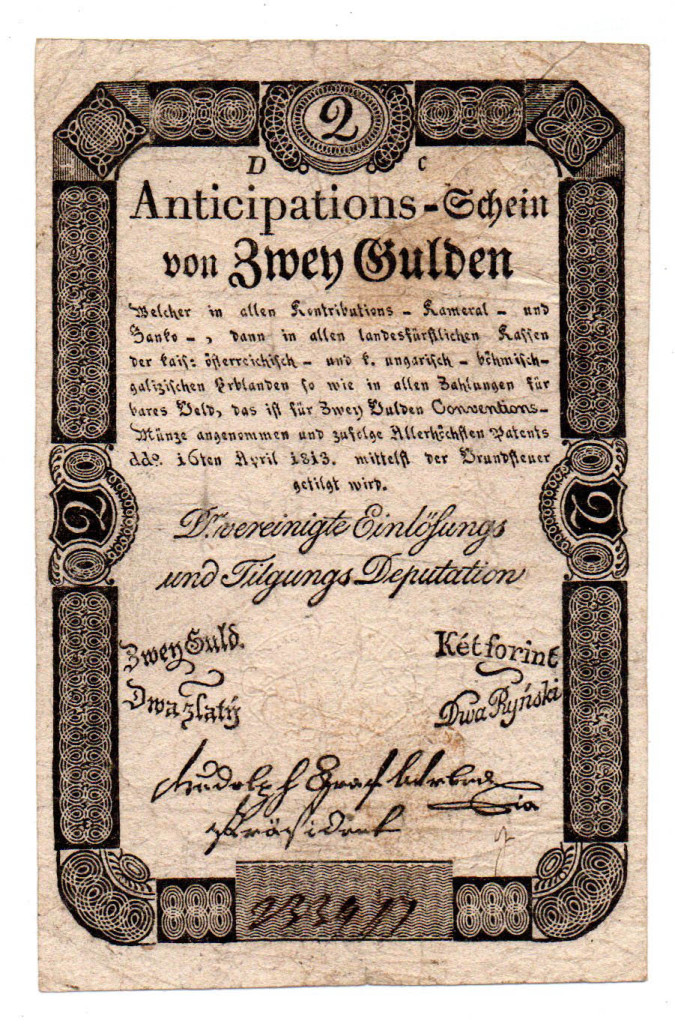 2
D C
Anticipations-Schein
von Zwey Gulden
Welcher in allen Kontributions - Kameral - und
Banko -, dann in allen landesfürstlichen Kassen
der kais: österreichisch - und k. ungarisch - böhmisch-
galizischen Erblanden so wie in allen Zahlungen für
bares Geld, das ist für Zwey Gulden Conventions-
Münze angenommen und zufolge Allerhöchsten Patents
ddo. 16ten April 1813. mittelst der Grundsteuer
getilgt wird.
2 2
Dr. vereinigte Einlösungs
und Tilgungs Deputation
Zwey Guld. Két forint
Dwa zlatý Dwa Ryński
Rudolph Graf
Präsident